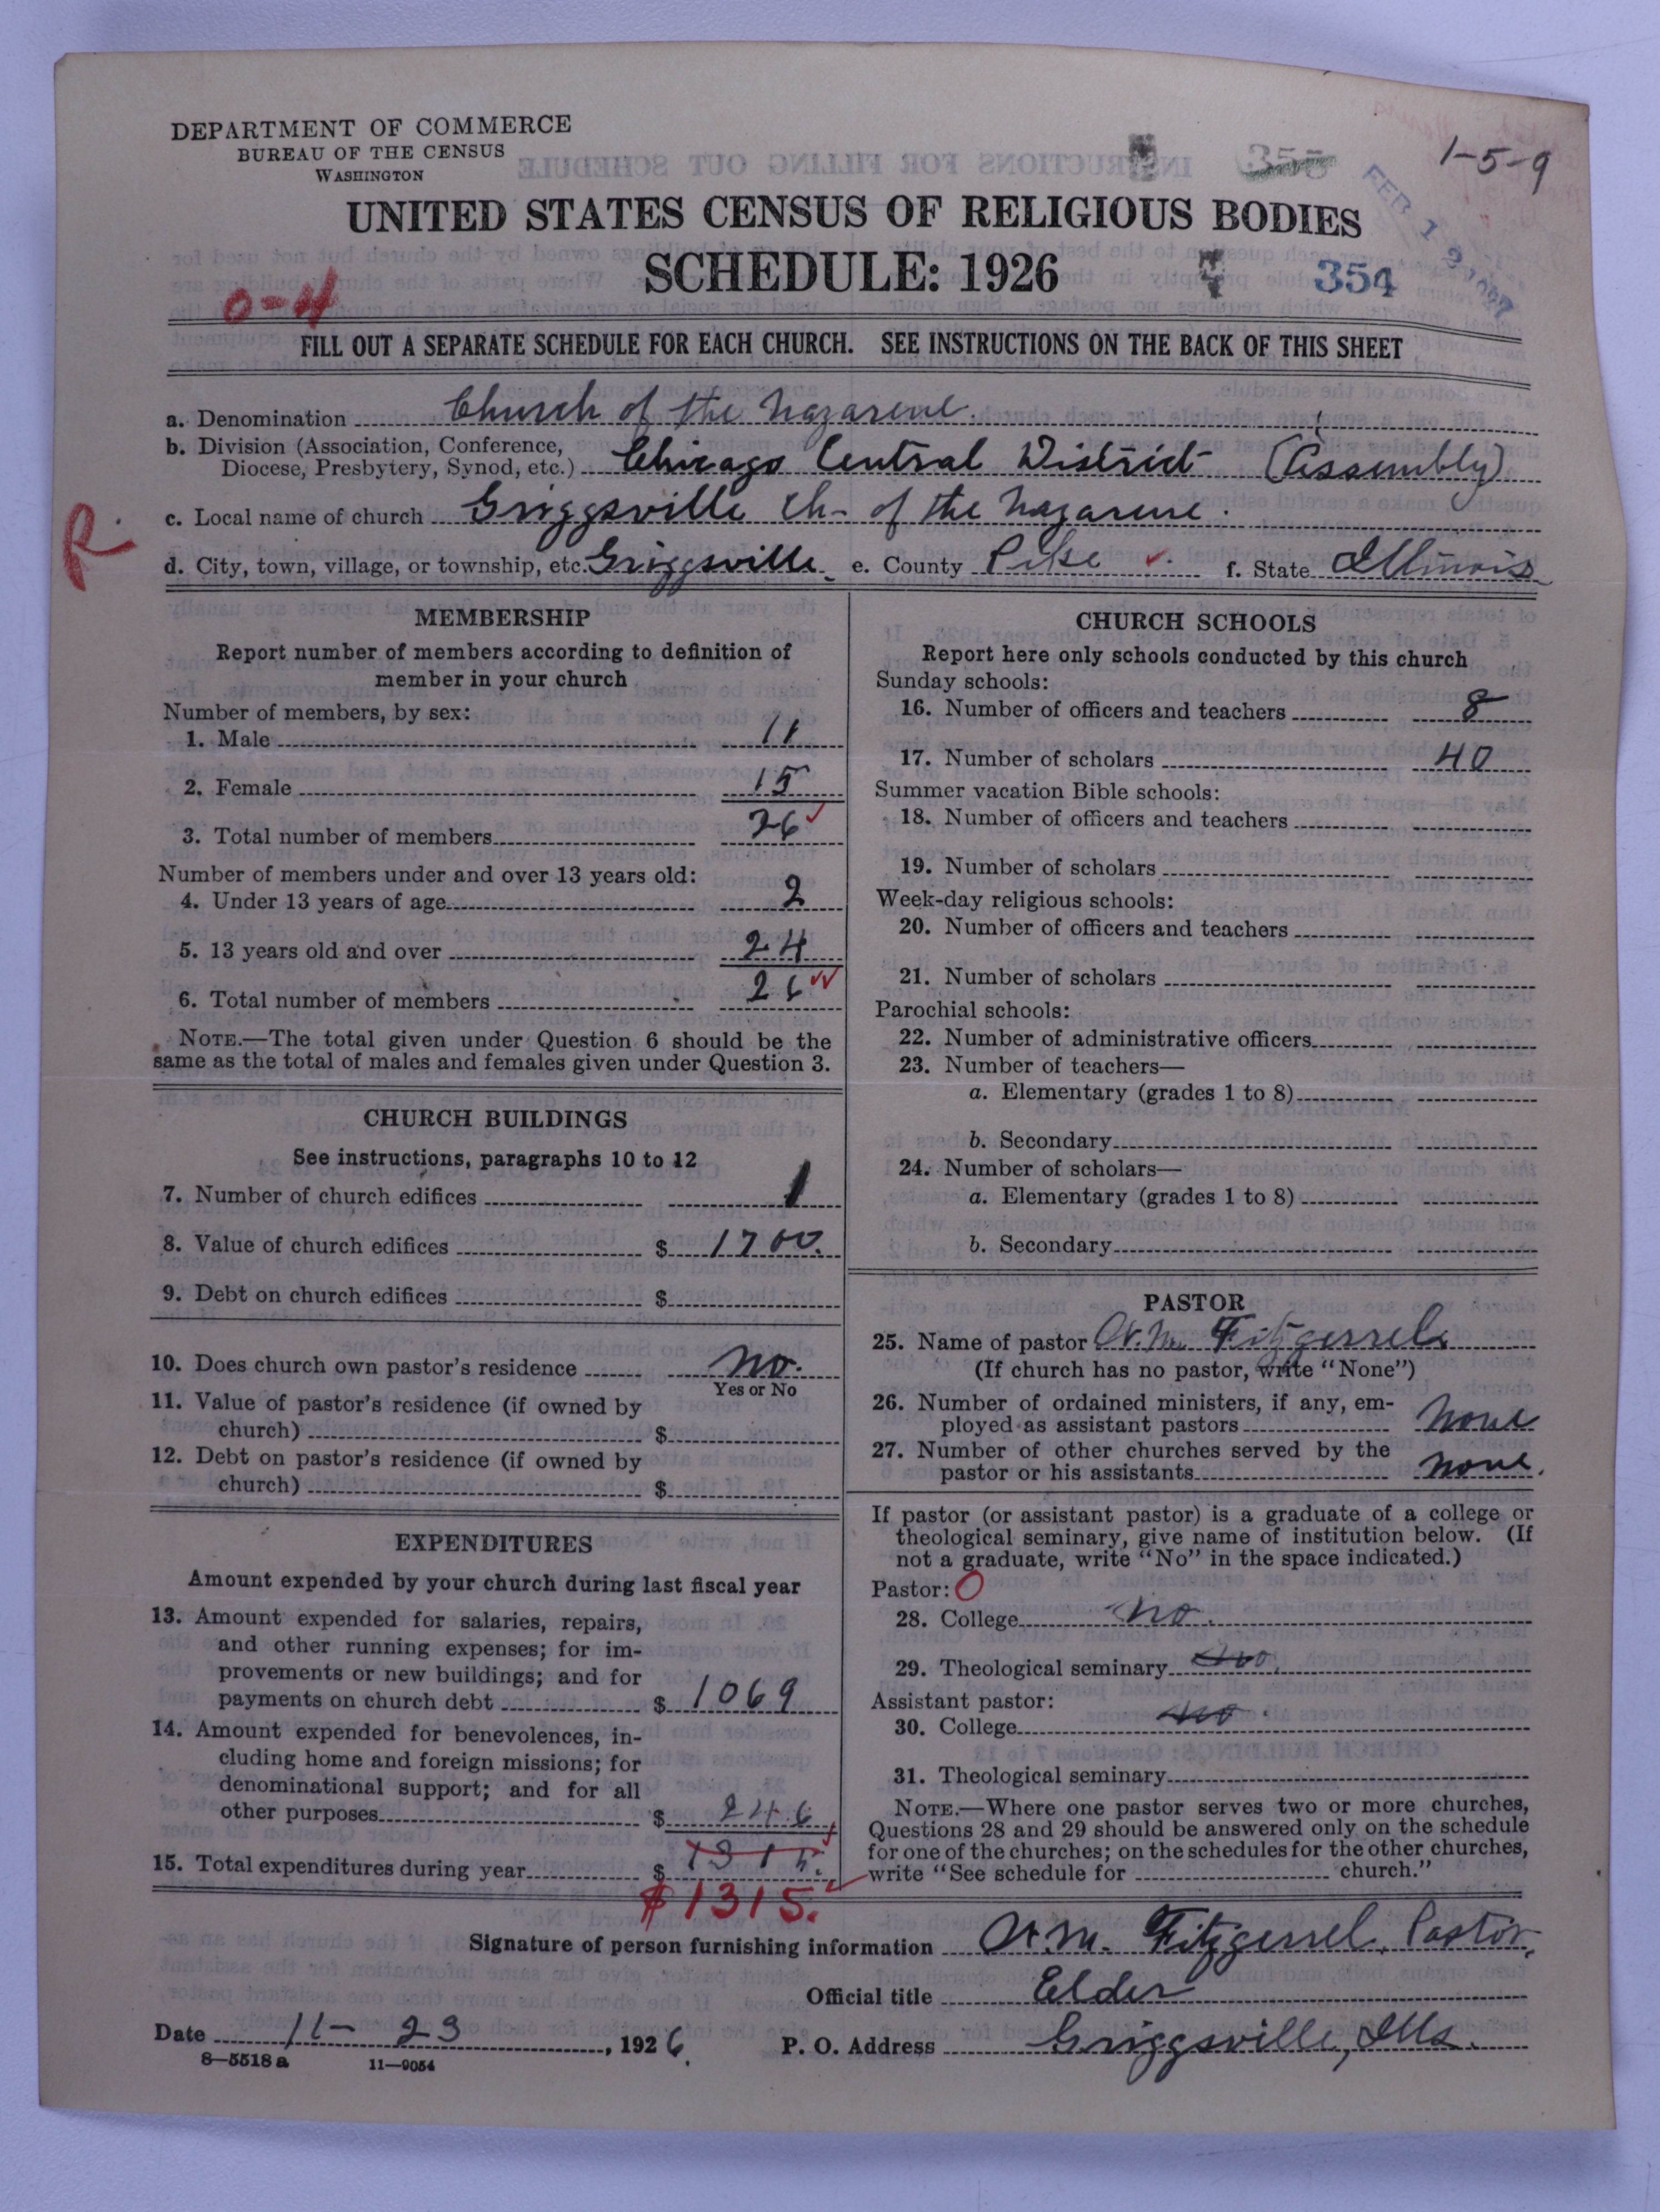 DEPARTMENT OF COMMERCE
BUREAU OF THE CENSUS
WASHINGTON
1-5-9
355
UNITED STATES CENSUS OF RELIGIOUS BODIES
SCHEDULE: 1926
354
0-4
FILL OUT A SEPARATE SCHEDULE FOR EACH CHURCH. SEE INSTRUCTIONS ON THE BACK OF THIS SHEET
a. Denomination Church of the Nazarene.
b. Division (Association, Conference,
Diocese, Presbytery, Synod, etc.) Chicago Central District (Assembly)
c. Local name of church Griggsville Ch- of the Nazarene.
R.
d. City, town, village, or township, etc. Griggsville e. County Pike f. State Illinois
MEMBERSHIP
Report number of members according to definition of
member in your church
Number of members, by sex:
1. Male 11
2. Female 15
3. Total number of members 26
Number of members under and over 13 years old:
4. Under 13 years of age 2
5. 13 years old and over 24
6. Total number of members 26
NOTE.—The total given under Question 6 should be the
same as the total of males and females given under Question 3.
CHURCH BUILDINGS
See instructions, paragraphs 10 to 12
7. Number of church edifices 1
8. Value of church edifices $ 1700.
9. Debt on church edifices $
10. Does church own pastor's residence no.
Yes or No
11. Value of pastor's residence (if owned by
church) $
12. Debt on pastor's residence (if owned by
church) $
EXPENDITURES
Amount expended by your church during last fiscal year
13. Amount expended for salaries, repairs,
and other running expenses; for im-
provements or new buildings; and for
payments on church debt $ 1069
14. Amount expended for benevolences, in-
cluding home and foreign missions; for
denominational support; and for all
other purposes $ 246
15. Total expenditures during year $ 1315.
$1315.
CHURCH SCHOOLS
Report here only schools conducted by this church
Sunday schools:
16. Number of officers and teachers 8
17. Number of scholars 40
Summer vacation Bible schools:
18. Number of officers and teachers
19. Number of scholars
Week-day religious schools:
20. Number of officers and teachers
21. Number of scholars
Parochial schools:
22. Number of administrative officers
23. Number of teachers—
a. Elementary (grades 1 to 8)
b. Secondary
24. Number of scholars—
a. Elementary (grades 1 to 8)
b. Secondary
PASTOR
25. Name of pastor W.M. Fitzgerrel
(If church has no pastor, write "None")
26. Number of ordained ministers, if any, em-
ployed as assistant pastors None
27. Number of other churches served by the
pastor or his assistants none.
If pastor (or assistant pastor) is a graduate of a college or
theological seminary, give name of institution below. (If
not a graduate, write "No" in the space indicated.)
Pastor: O
28. College no.
29. Theological seminary no.
Assistant pastor:
30. College no
31. Theological seminary
NOTE.—Where one pastor serves two or more churches,
Questions 28 and 29 should be answered only on the schedule
for one of the churches; on the schedules for the other churches,
write "See schedule for church."
Signature of person furnishing information W.M. Fitzgerrel, Pastor,
Official title Elder
Date 11-23, 1926. P. O. Address Griggsville, Ills.
8-5518a 11-9054